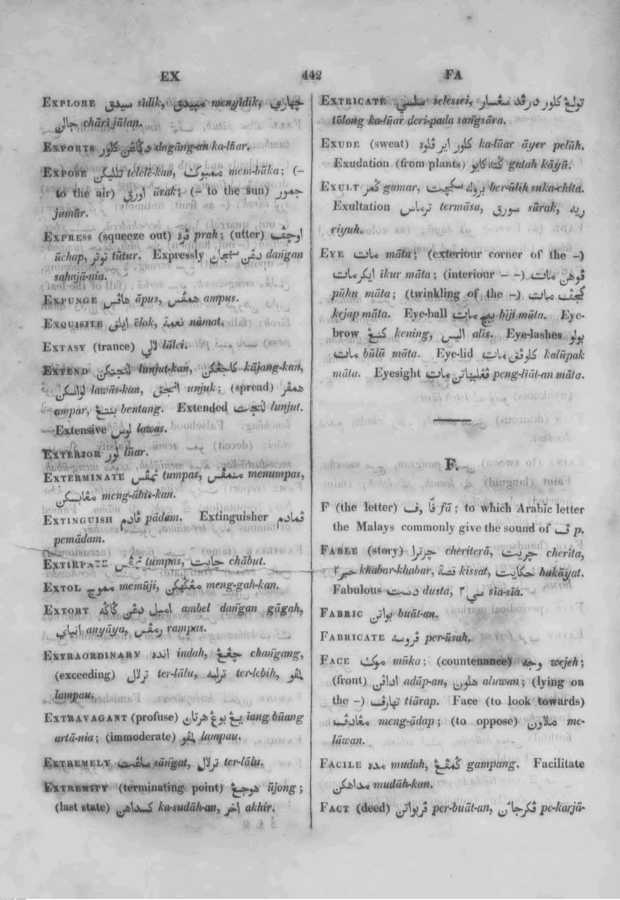 EX 442 FA
EXPLORE سيدق sīdik, مپيدق menyīdik, چهاري
جالن chāri jālan.
EXPORTS دگاڠن كلور dagāng-an ka-lūar.
EXPOSE تلتيكن telēte-kan, ممبوك mem-būka; (–
to the air) اورق ūrak; (– to the sun) جمور
jamūr.
EXPRESS (squeeze out) prah; (utter) اوچڤ
ūchap, توتر tūtur. Expressly دڠن سهجان dañgan
sahajā-nia.
EXPUNGE هاڤس āpus, همڤس ampus.
EXQUISITE ايلق ēlok, نعمة nâmat.
EXTASY (trance) لالي lālei.
EXTEND لنجتكن lunjut-kan, كاجڠكن kājang-kan,
لواسكن lawās-kan, انجق unjuk; (spread) همڤر
ampar, بنتڠ bentang. Extended لنجت lunjut.
Extensive لوس lawas.
EXTERIOR لور lūar.
EXTERMINATE تمڤس tumpas, منمڤس menumpas,
مڠابسكن meng-ābis-kan.
EXTINGUISH ڤادم pādam. Extinguisher ڤمادم
pemādam.
EXTIRPATE تمڤس tumpas, چابت chābut.
EXTOL مموج memūji, مڠگهكن meng-gah-kan.
EXTORT امبل دڠن گاگه ambel dañgan gāgah,
انياي anyāya, رمڤس rampas.
EXTRAORDINARY انده indah, چڠڠ chañgang,
(exceeding) ترلالو ter-lālu, ترلبه ter-lebih,
lampau.
EXTRAVAGANT (profuse) يڠ بوڠ هرتان iang būang
artā-nia; (immoderate) لمڤو lampau.
EXTREMELY ساڠت sāñgat, ترلالو ter-lālu.
EXTREMITY (terminating point) هوجڠ ūjong;
(last state) كسدهان ka-sudāh-an, اخر akhir.
EXTRICATE سلسي selesei, تولڠ كلور درڤد سڠسار
tōlong ka-lūar deri-pada sangsāra.
EXUDE (sweat) كلور اير ڤلوه ka-lūar āyer pelūh.
Exudation (from plants) گته كايو gutah kāyū.
EXULT گمر gamar, بروله سكچيت ber-ūlih suka-chita.
Exultation ترماس termāsa, سورق sūrak, ريه
riyuh.
EYE مات māta; (exteriour corner of the –)
ايكر مات īkur māta; (interiour – –) ڤوهن مات
pūhn māta; (twinkling of the –) كجڤ مات
kejap māta. Eye-ball بيج مات bīji māta. Eye-
brow كنڠ kening, الس alis. Eye-lashes بولو
مات būlū māta. Eye-lid كلوڤق مات kalūpak
māta. Eyesight ڤڠلياتن مات peng-liāt-an māta.
F.
F (the letter) ف, فا fā; to which Arabic letter
the Malays commonly give the sound of ڤ p.
FABLE (story) چرترا cheriterā, چريت cherita,
خبر٢ khabar-khabar, قصة kissat, حكايت hakāyat.
Fabulous دست dusta, سي٢ sīa-sīa.
FABRIC بواتن buāt-an.
FABRICATE ڤروسه per-ūsah.
FACE موك mūka; (countenance) وجه wejeh;
(front) اداڤن adāp-an, هلون aluwan; (lying on
the –) تيارڤ tiārap. Face (to look towards)
مڠادڤ meng-ādap; (to oppose) ملاون me-
lāwan.
FACILE مده mudah, گمڤڠ gampang. Facilitate
مداهكن mudāh-kan.
FACT (deed) ڤربواتن per-buāt-an, ڤكرجان pe-karjā-